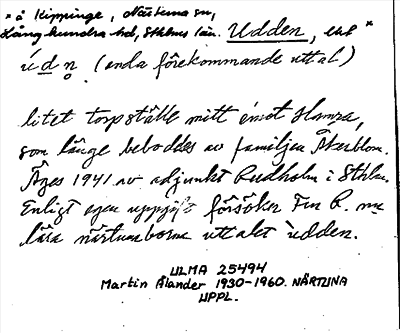 "å Kippinge, Närtuna sn,
Långhundra hd, Sthlms län. Udden, ett "
ú d n̥ (enda förekommande uttal)
litet torpställe mitt emot
som länge beboddes av familjen Åkerblom.
Äges 1941 av adjunkt Redholm i Sthlm.
Enligt egen uppgift försöker Fru R. nu
lära närtunaborna uttalet `udden.
ULMA 25494
Martin Ålander 1930-1960. NÄRTUNA
UPPL.